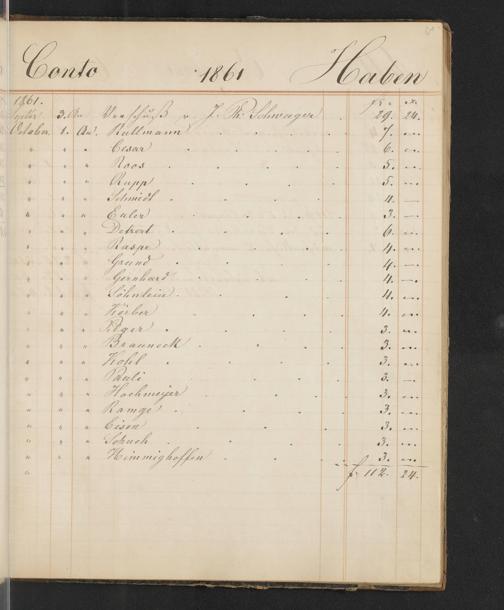 Conto 1861 Haben
1861.
Septbr. 3. An Vorschuß v. J. Ph. Schwager 29. 24.
October 1. An Kullmann 7. —
" " " Cesar 6. —
" " " Roos 5. —
" " " Rupp 5. —
" " " Schmidt 4. —
" " " Euler 3. —
" " " 6. —
" " " Raspe 4. —
" " " Grund 4. —
" " " Gernhard 4. —
" " " Söhnlein 4. —
" " " Körber 4. —
" " " 3. —
" " " Brauneck 3. —
" " " Kohl 3. —
" " " Pauli 3. —
" " " Hochmeyer 3. —
" " " Ramge 3. —
" " " Eisen 3. —
" " " Schuch 3. —
" " " Himmighoffen 3. —
" f. 112. 24.